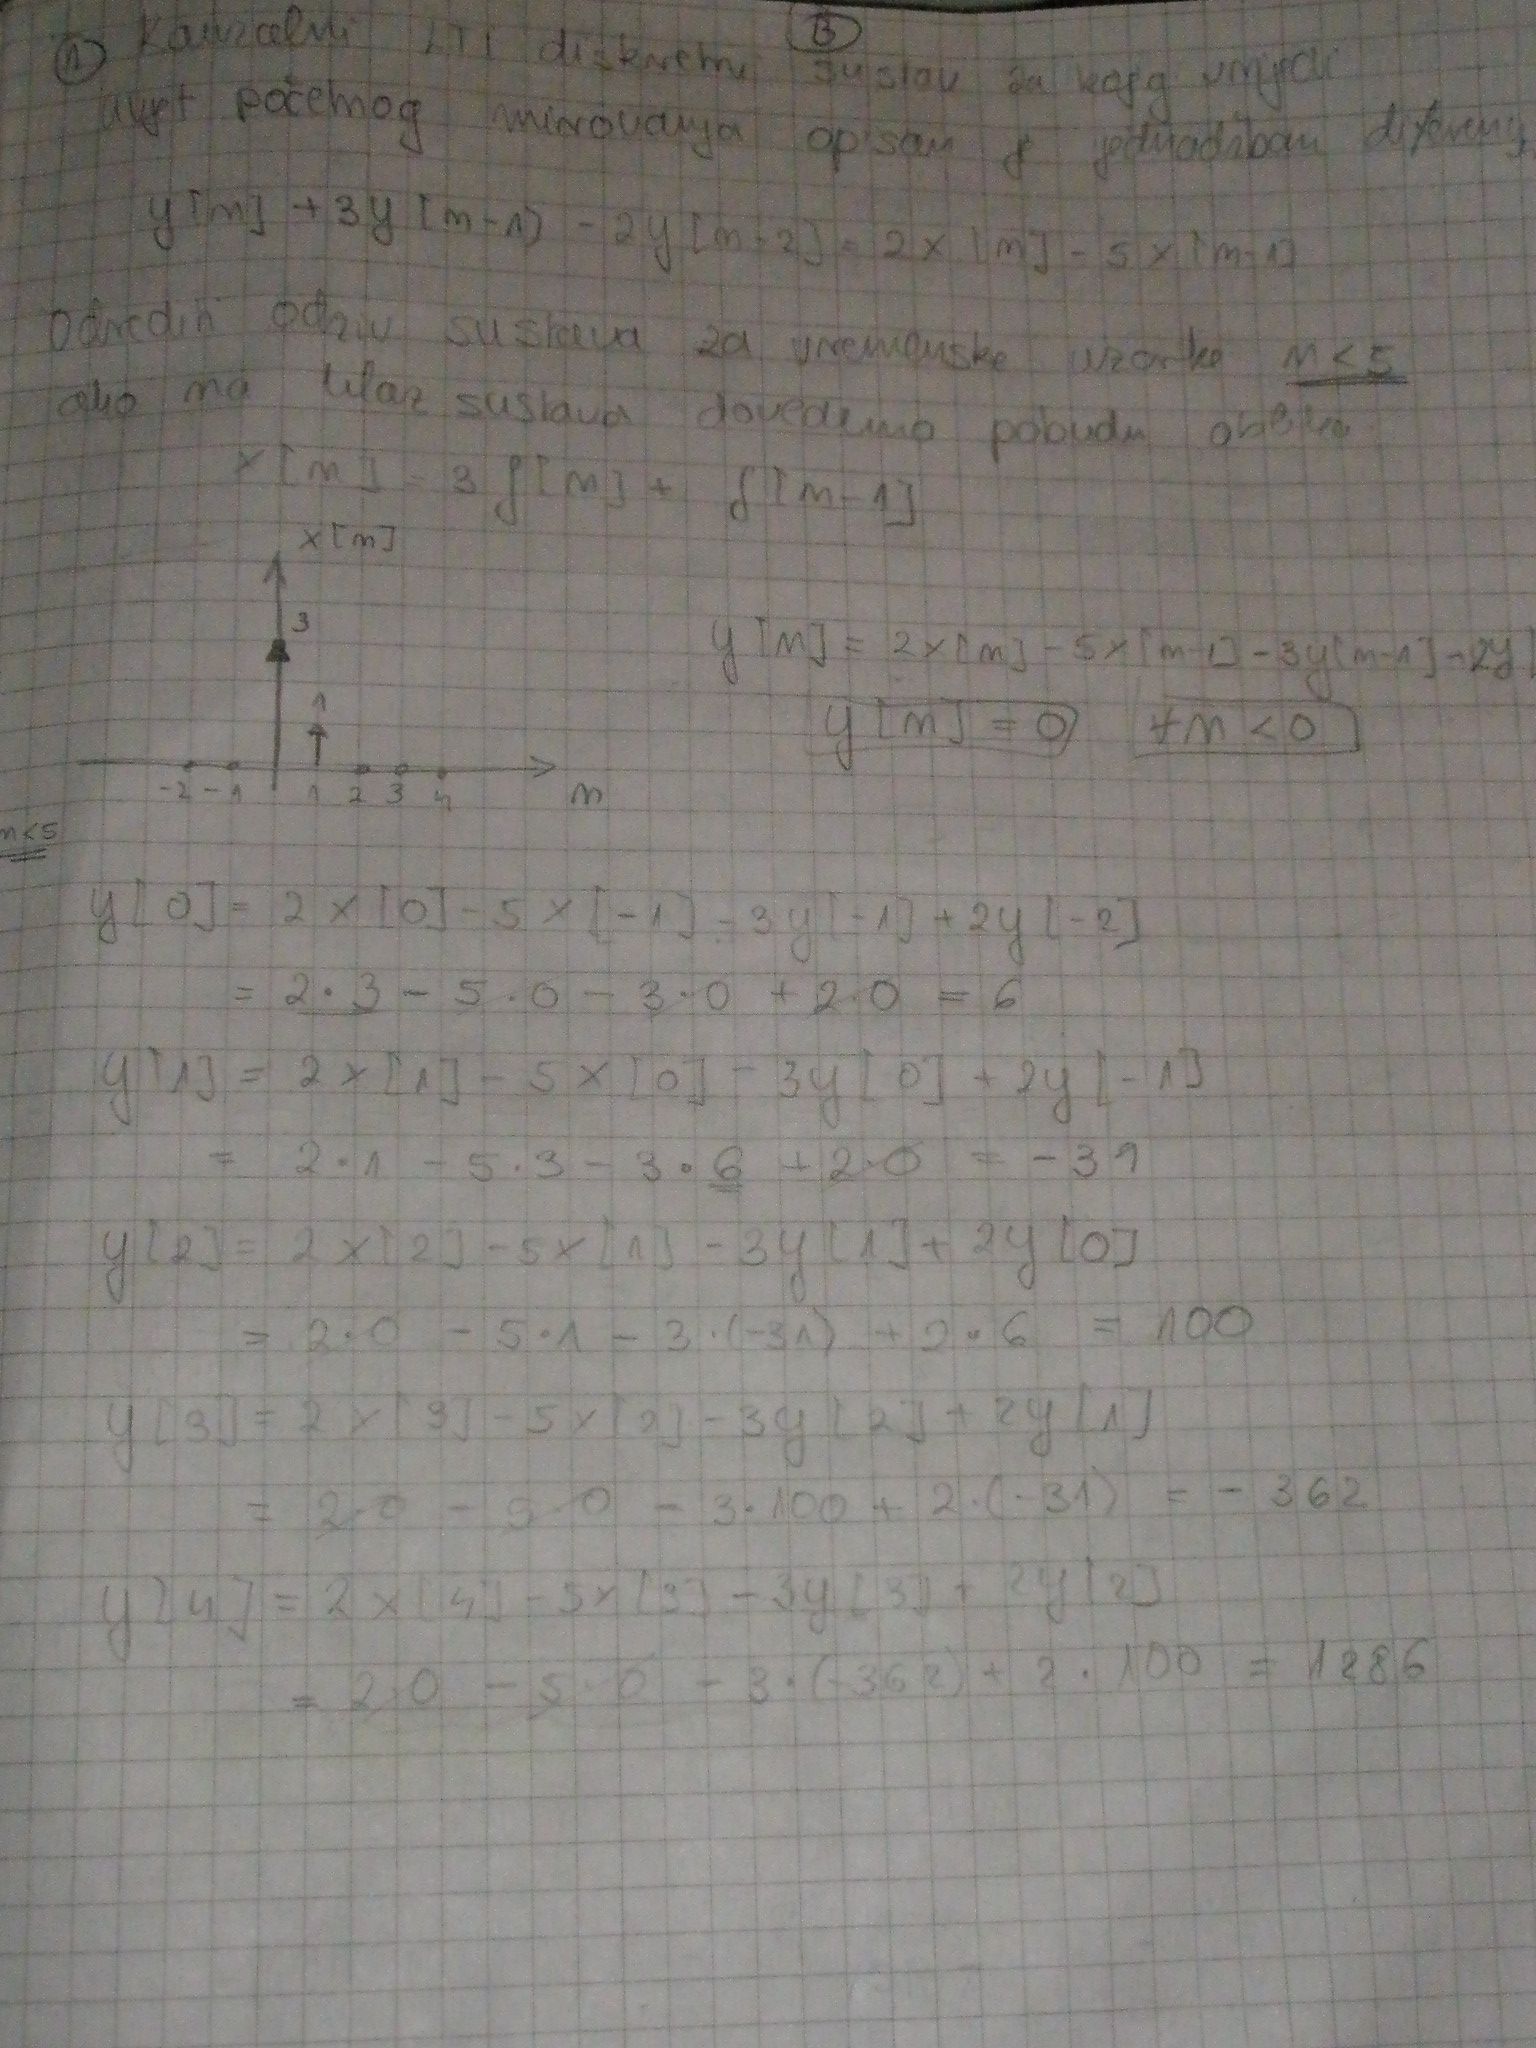 B
1 Kauzalni LTI diskretni sustav za kojg vrijedi
uvjet početnog mirovanja opisan je jednadžbau diferencij
y[n] + 3y[n-1] - 2y[n-2] = 2x[n] - 5x[n-1]
Odrediti odziv sustava za vremenske uzorke n<5
ako na ulaz sustava dovedemo pobudu oblika
x[n] = 3δ[n] + δ[n-1]
x[n]
3
1
-2 -1 1 2 3 4 n
y[n] = 2x[n] - 5x[n-1] - 3y[n-1] + 2y[
y[n] = 0 ∀n < 0
n<5
y[0] = 2x[0] - 5x[-1] - 3y[-1] + 2y[-2]
= 2·3 - 5·0 - 3·0 + 2·0 = 6
y[1] = 2x[1] - 5x[0] - 3y[0] + 2y[-1]
= 2·1 - 5·3 - 3·6 + 2·0 = -31
y[2] = 2x[2] - 5x[1] - 3y[1] + 2y[0]
= 2·0 - 5·1 - 3·(-31) + 2·6 = 100
y[3] = 2x[3] - 5x[2] - 3y[2] + 2y[1]
= 2·0 - 5·0 - 3·100 + 2·(-31) = -362
y[4] = 2x[4] - 5x[3] - 3y[3] + 2y[2]
= 2·0 - 5·0 - 3·(-362) + 2·100 = 1286